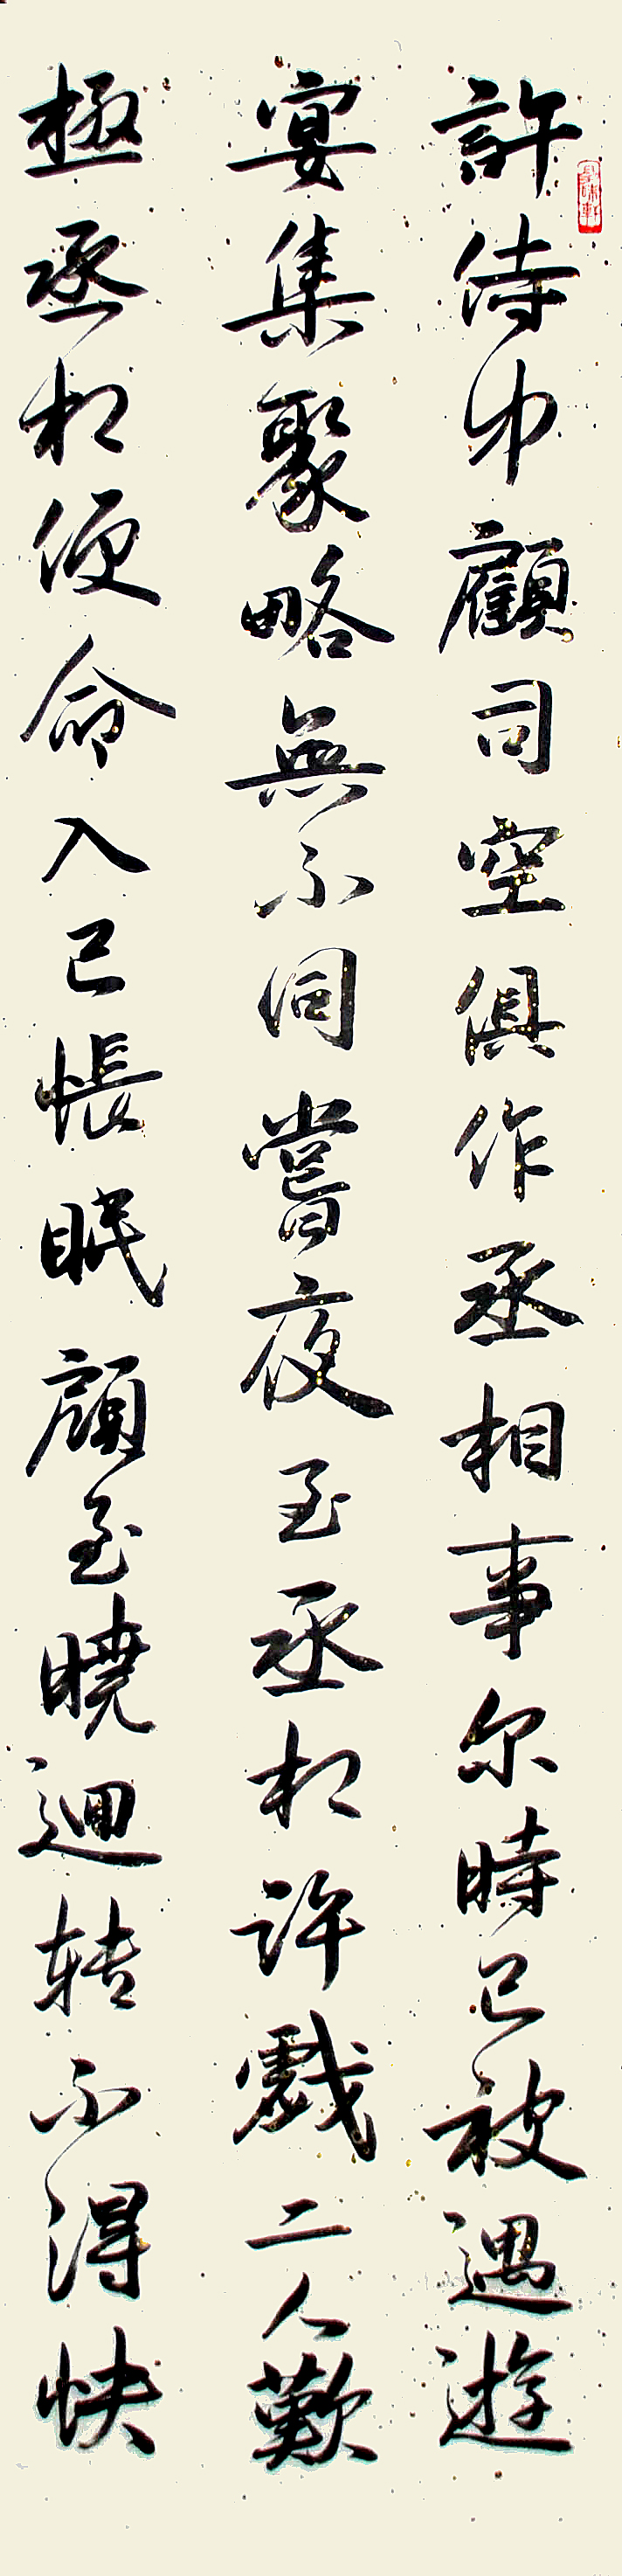 許侍中顧司空俱作丞相事尔時已被遇遊
宴集聚略無不同嘗夜至丞相許戲二人歡
極丞相便命入己帳眠顧至曉迴转不得快